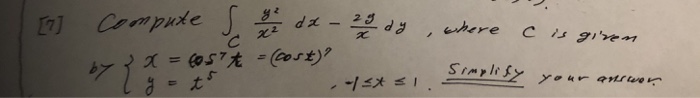 [7] Compute ∫_C y²/x² dx − 2y/x dy, where C is given
by { x = cos⁷t = (cost)⁷
y = t⁵ , -1≤t≤1. Simplify your answer.